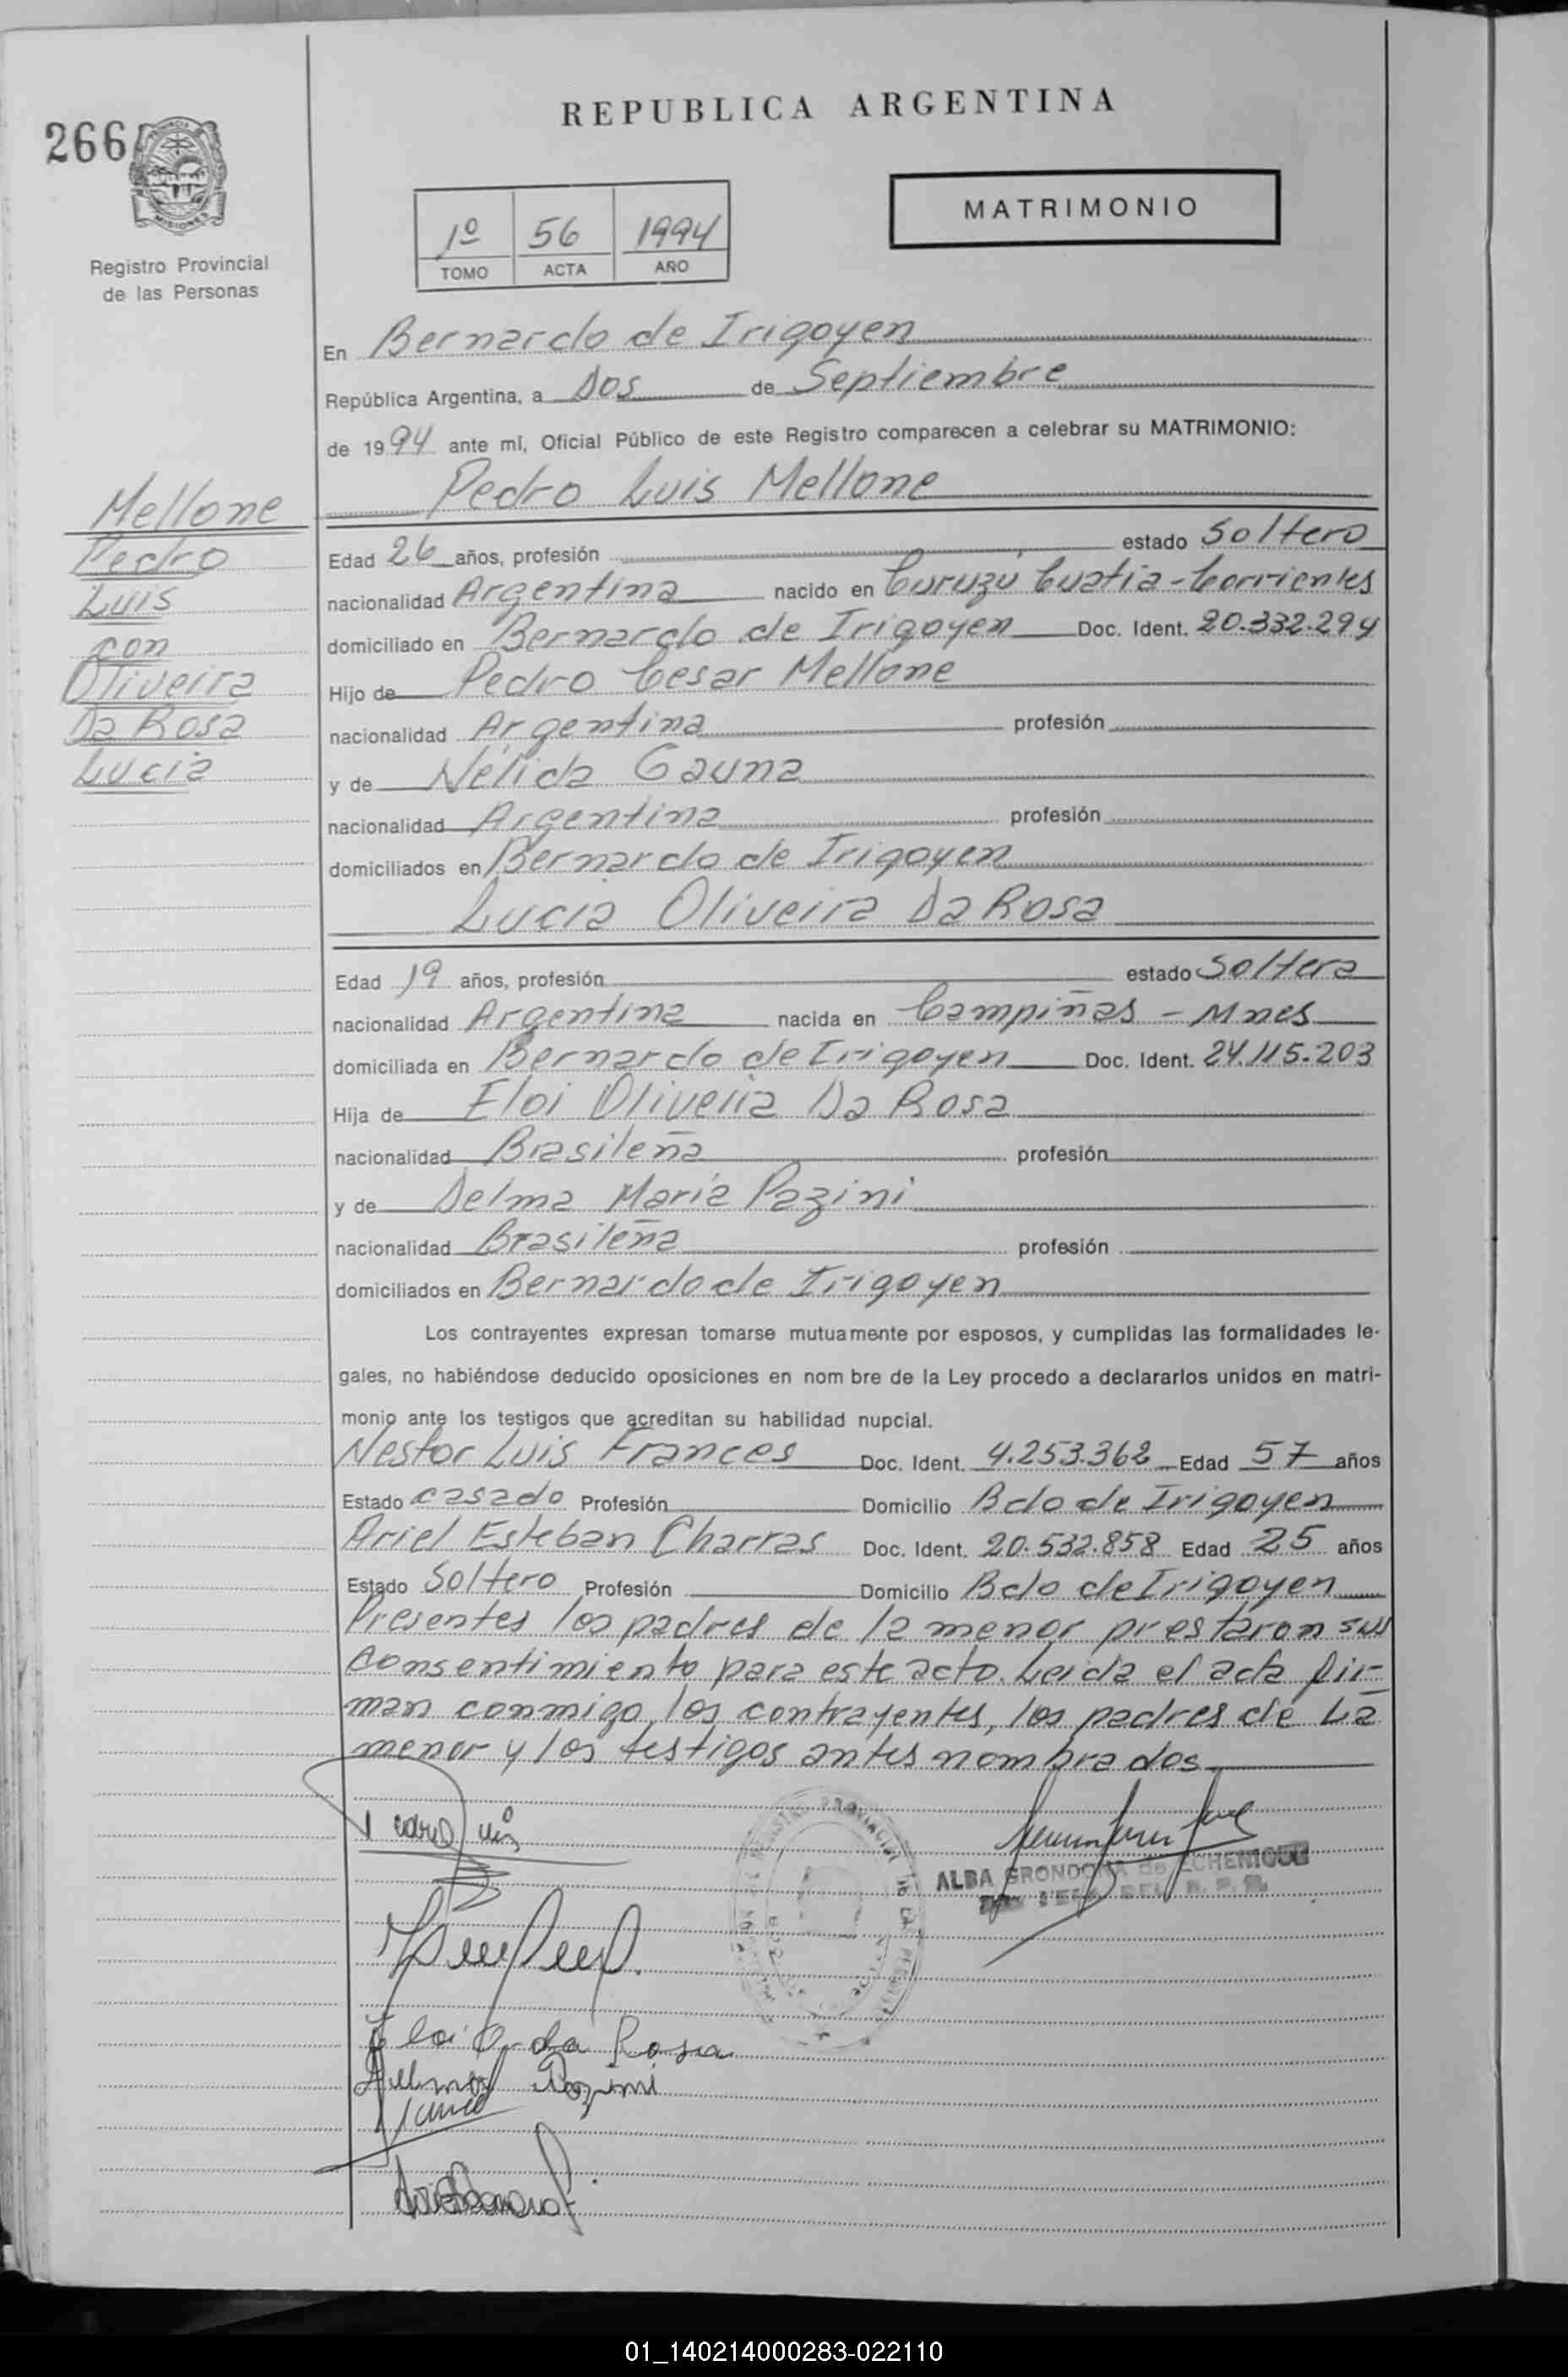 REPUBLICA ARGENTINA
266
MISIONES
Registro Provincial
de las Personas
MATRIMONIO
1º 56 1994
TOMO ACTA AÑO
En Bernardo de Irigoyen
República Argentina, a Dos de Septiembre
de 1994 ante mí, Oficial Público de este Registro comparecen a celebrar su MATRIMONIO:
Pedro Luis Mellone
Mellone
Pedro
Luis
con
Oliveira
Da Rosa
Lucia
Edad 26 años, profesión estado Soltero
nacionalidad Argentina nacido en Curuzú Cuatia - Corrientes
domiciliado en Bernardo de Irigoyen Doc. Ident. 20.332.294
Hijo de Pedro Cesar Mellone
nacionalidad Argentina profesión
y de Nélida Gauna
nacionalidad Argentina profesión
domiciliados en Bernardo de Irigoyen
Lucia Oliveira Da Rosa
Edad 19 años, profesión estado Soltera
nacionalidad Argentina nacida en Campiñas - Mnes
domiciliada en Bernardo de Irigoyen Doc. Ident. 24.115.203
Hija de Eloi Oliveira Da Rosa
nacionalidad Brasileña profesión
y de Delma María Pazini
nacionalidad Brasileña profesión
domiciliados en Bernardo de Irigoyen
Los contrayentes expresan tomarse mutuamente por esposos, y cumplidas las formalidades le-
gales, no habiéndose deducido oposiciones en nom bre de la Ley procedo a declararlos unidos en matri-
monio ante los testigos que acreditan su habilidad nupcial.
Nestor Luis Frances Doc. Ident. 4.253.362 Edad 57 años
Estado casado Profesión Domicilio Bdo de Irigoyen
Ariel Esteban Charras Doc. Ident. 20.532.858 Edad 25 años
Estado Soltero Profesión Domicilio Bdo de Irigoyen
Presentes los padres de la menor prestaron sus
consentimiento para este acto. Leida el acta fir-
man conmigo, los contrayentes, los padres de La
menor y los testigos antes nombrados
ALBA GRONDONA de ECHENIQUE
Eloi O. da Rosa
Delma Pozini
01_140214000283-022110